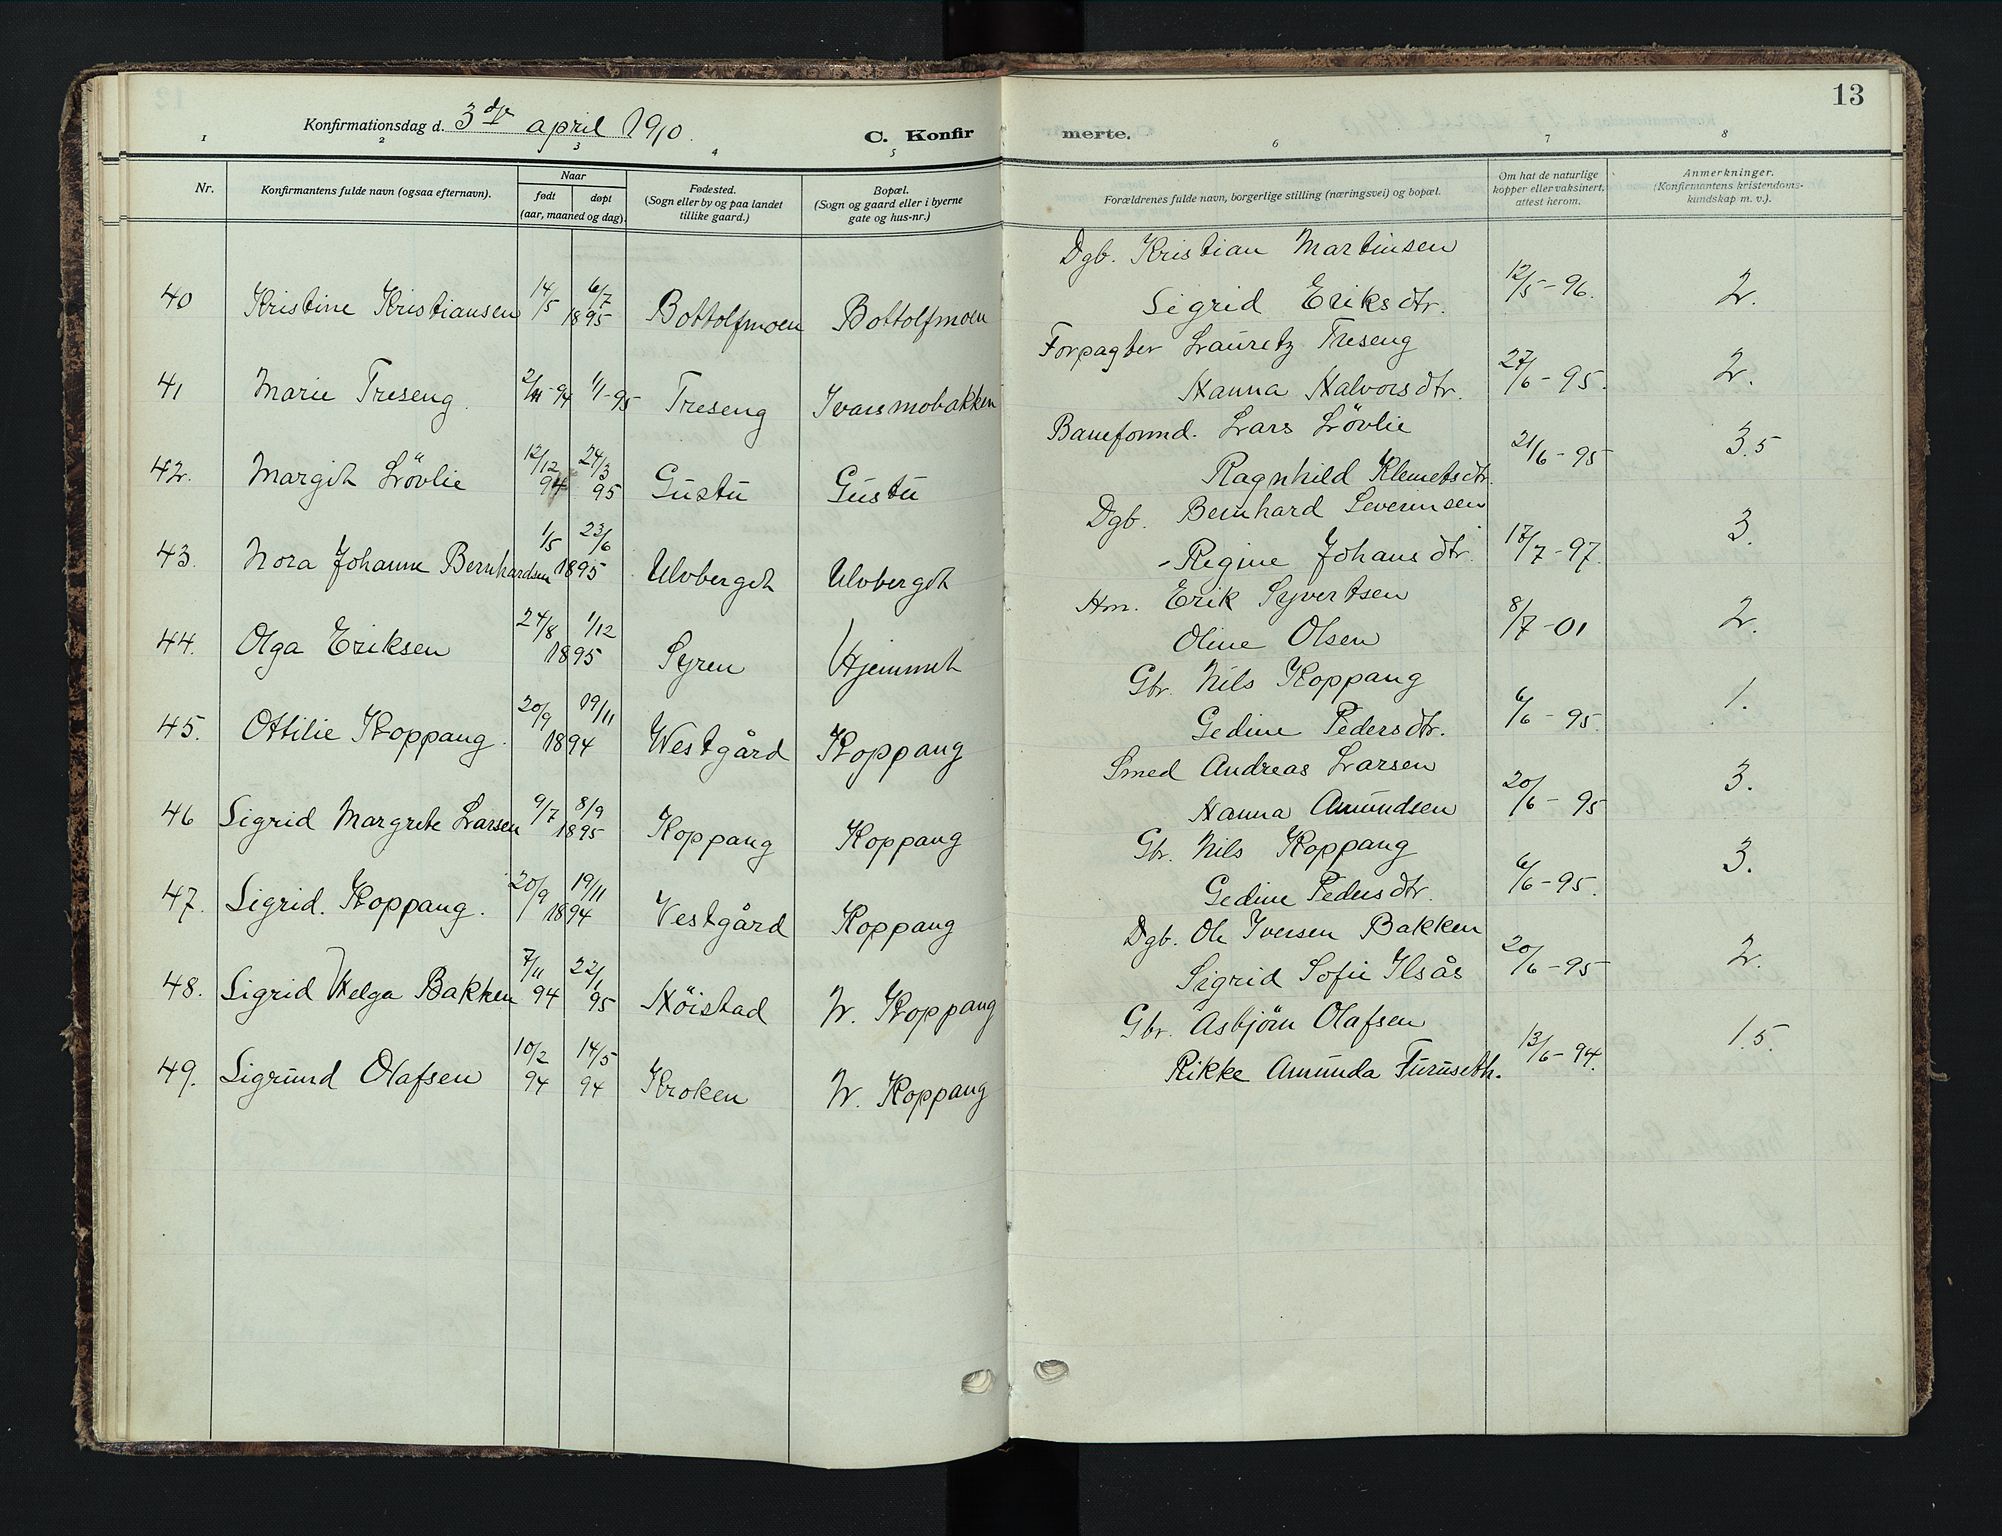 13
Konfirmationsdag d. 3die april 1910.
C. Konfirmerte.
1 2 3 4 5 6 7 8
Nr.
Konfirmantens fulde navn (ogsaa efternavn).
Naar
født døpt
(aar, maaned og dag).
Fødested.
(Sogn eller by og paa landet
tillike gaard.)
Bopæl.
(Sogn og gaard eller i byerne
gate og hus-nr.)
Forældrenes fulde navn, borgerlige stilling (næringsvei) og bopæl.
Om hat de naturlige
kopper eller vaksinert,
attest herom.
Anmerkninger.
(Konfirmantens kristendoms-
kundskap m. v.).
Dgb. Kristian Martinsen
40 Kristine Kristiansen 14/5 6/7 1895 Bottolfmoen Bottolfmoen Sigrid Eriksdtr. 12/5-96. 2.
Forpagter Lauretz Treseng
41 Marie Treseng 2/11-94 1/1-95 Treseng Ivarsmobakken Hanna Halvorsdtr. 27/6-95. 2.
Baneformd. Lars Lövlie
42. Margit Lövlie 12/12 94 24/3 95 Gustu Gustu Ragnhild Klemetsdtr. 21/6-95 3.5
Dgb. Bernhard Severinsen
43. Nora Johanne Bernhardsen 1/5 23/6 1895 Ulvberget Ulvberget Regine Johansdtr. 17/7-97. 3.
Hm. Erik Syvertsen
44. Olga Eriksen 24/8 1/12 1895 Syren Hjemmet Oline Olsen 8/7-01 2.
Gbr. Nils Koppang
45. Ottilie Koppang. 20/9 19/11 1894 Westgård Koppang Gedine Pedersdtr. 6/6-95. 1.
Smed Andreas Larsen
46 Sigrid Margrete Larsen 9/7 8/9 1895 Koppang Koppang Hanna Amundsen 20/6-95 3.
Gbr. Nils Koppang
47. Sigrid. Koppang. 20/9 19/11 1894 Vestgård Koppang Gedine Pedersdtr. 6/6-95. 3.
Dgb. Ole Iversen Bakken
48. Sigrid Helga Bakken 7/11 94 22/1 95 Höistad N. Koppang Sigrid Sofie Ilsås 20/6-95 2.
Gbr. Asbjörn Olafsen
49. Sigrund Olafsen 10/2 94 14/5 94 Kroken N. Koppang Rikke Amunda Furuseth. 13/6-94. 1.5.